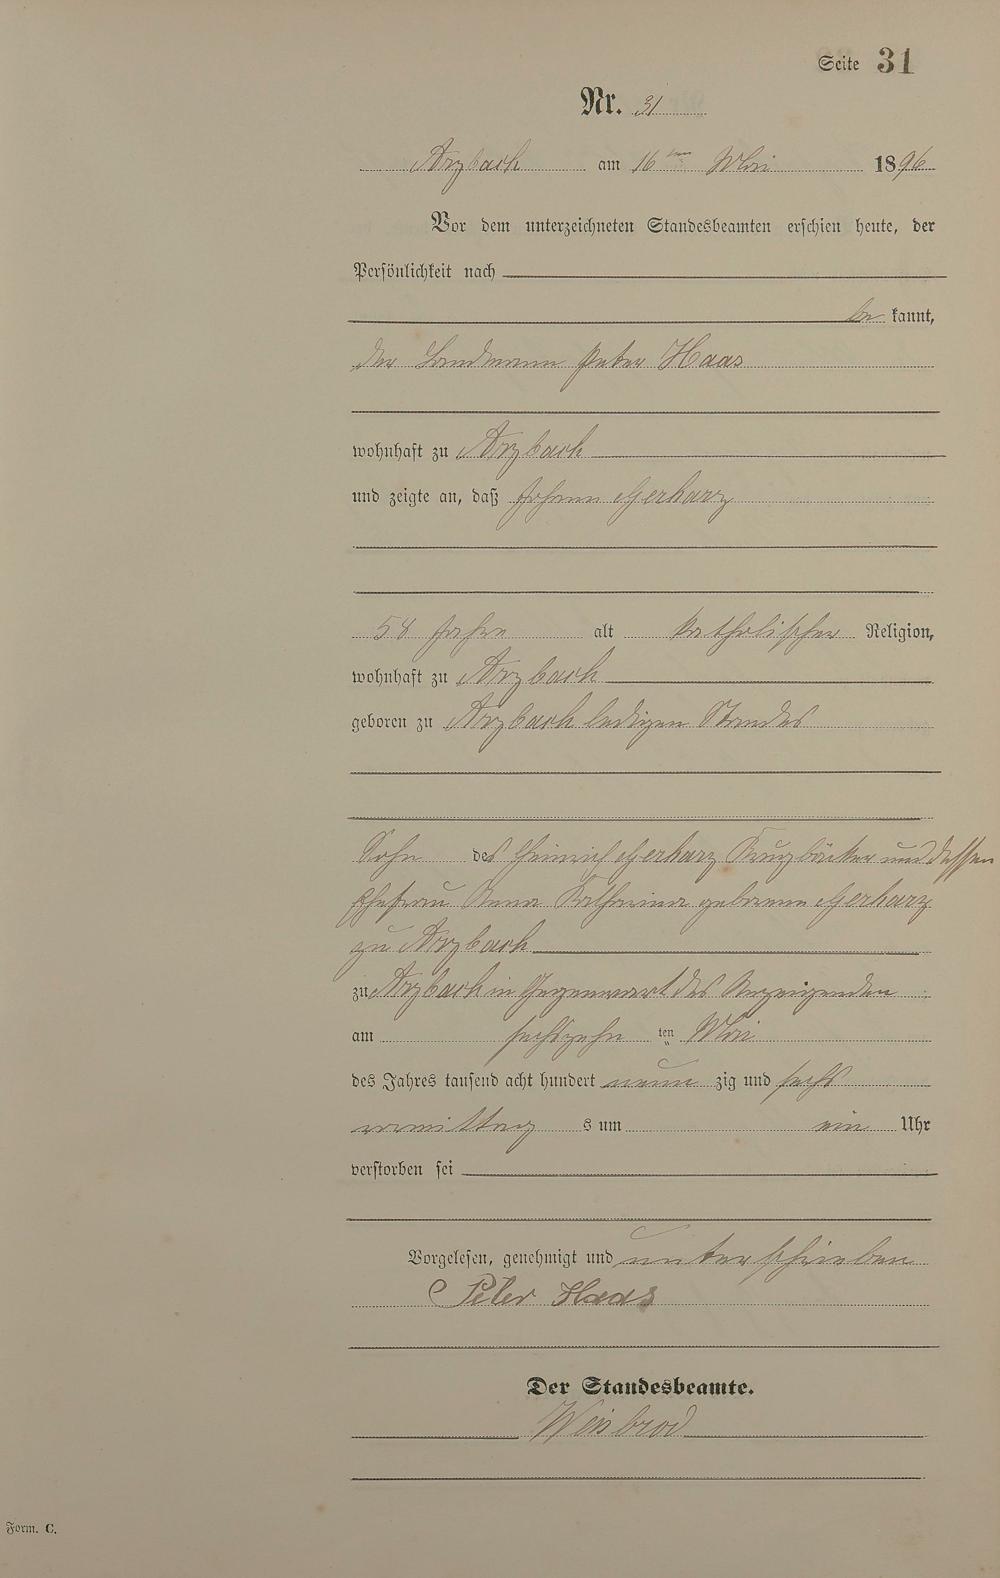 Seite 31
Nr. 31
Arzbach am 16ten Mai 1896
Vor dem unterzeichneten Standesbeamten erschien heute, der
Persönlichkeit nach
be kannt,
der Landmann Peter Haas
wohnhaft zu Arzbach
und zeigte an, daß Johann Gerharz
58 Jahre alt katholischer Religion,
wohnhaft zu Arzbach
geboren zu Arzbach ledigen Standes
Sohn des Heinrich Gerharz Krugbäcker und dessen
Ehefrau Anna Katharina geborene Gerharz
zu Arzbach
zu Arzbach in Gegenwart des Anzeigenden
am sechszehn ten Mai
des Jahres tausend acht hundert neun zig und sechs
vormittag s um ein Uhr
verstorben sei
Vorgelesen, genehmigt und unterschrieben
Peter Haas
Der Standesbeamte.
Weisbrod
Form. C.